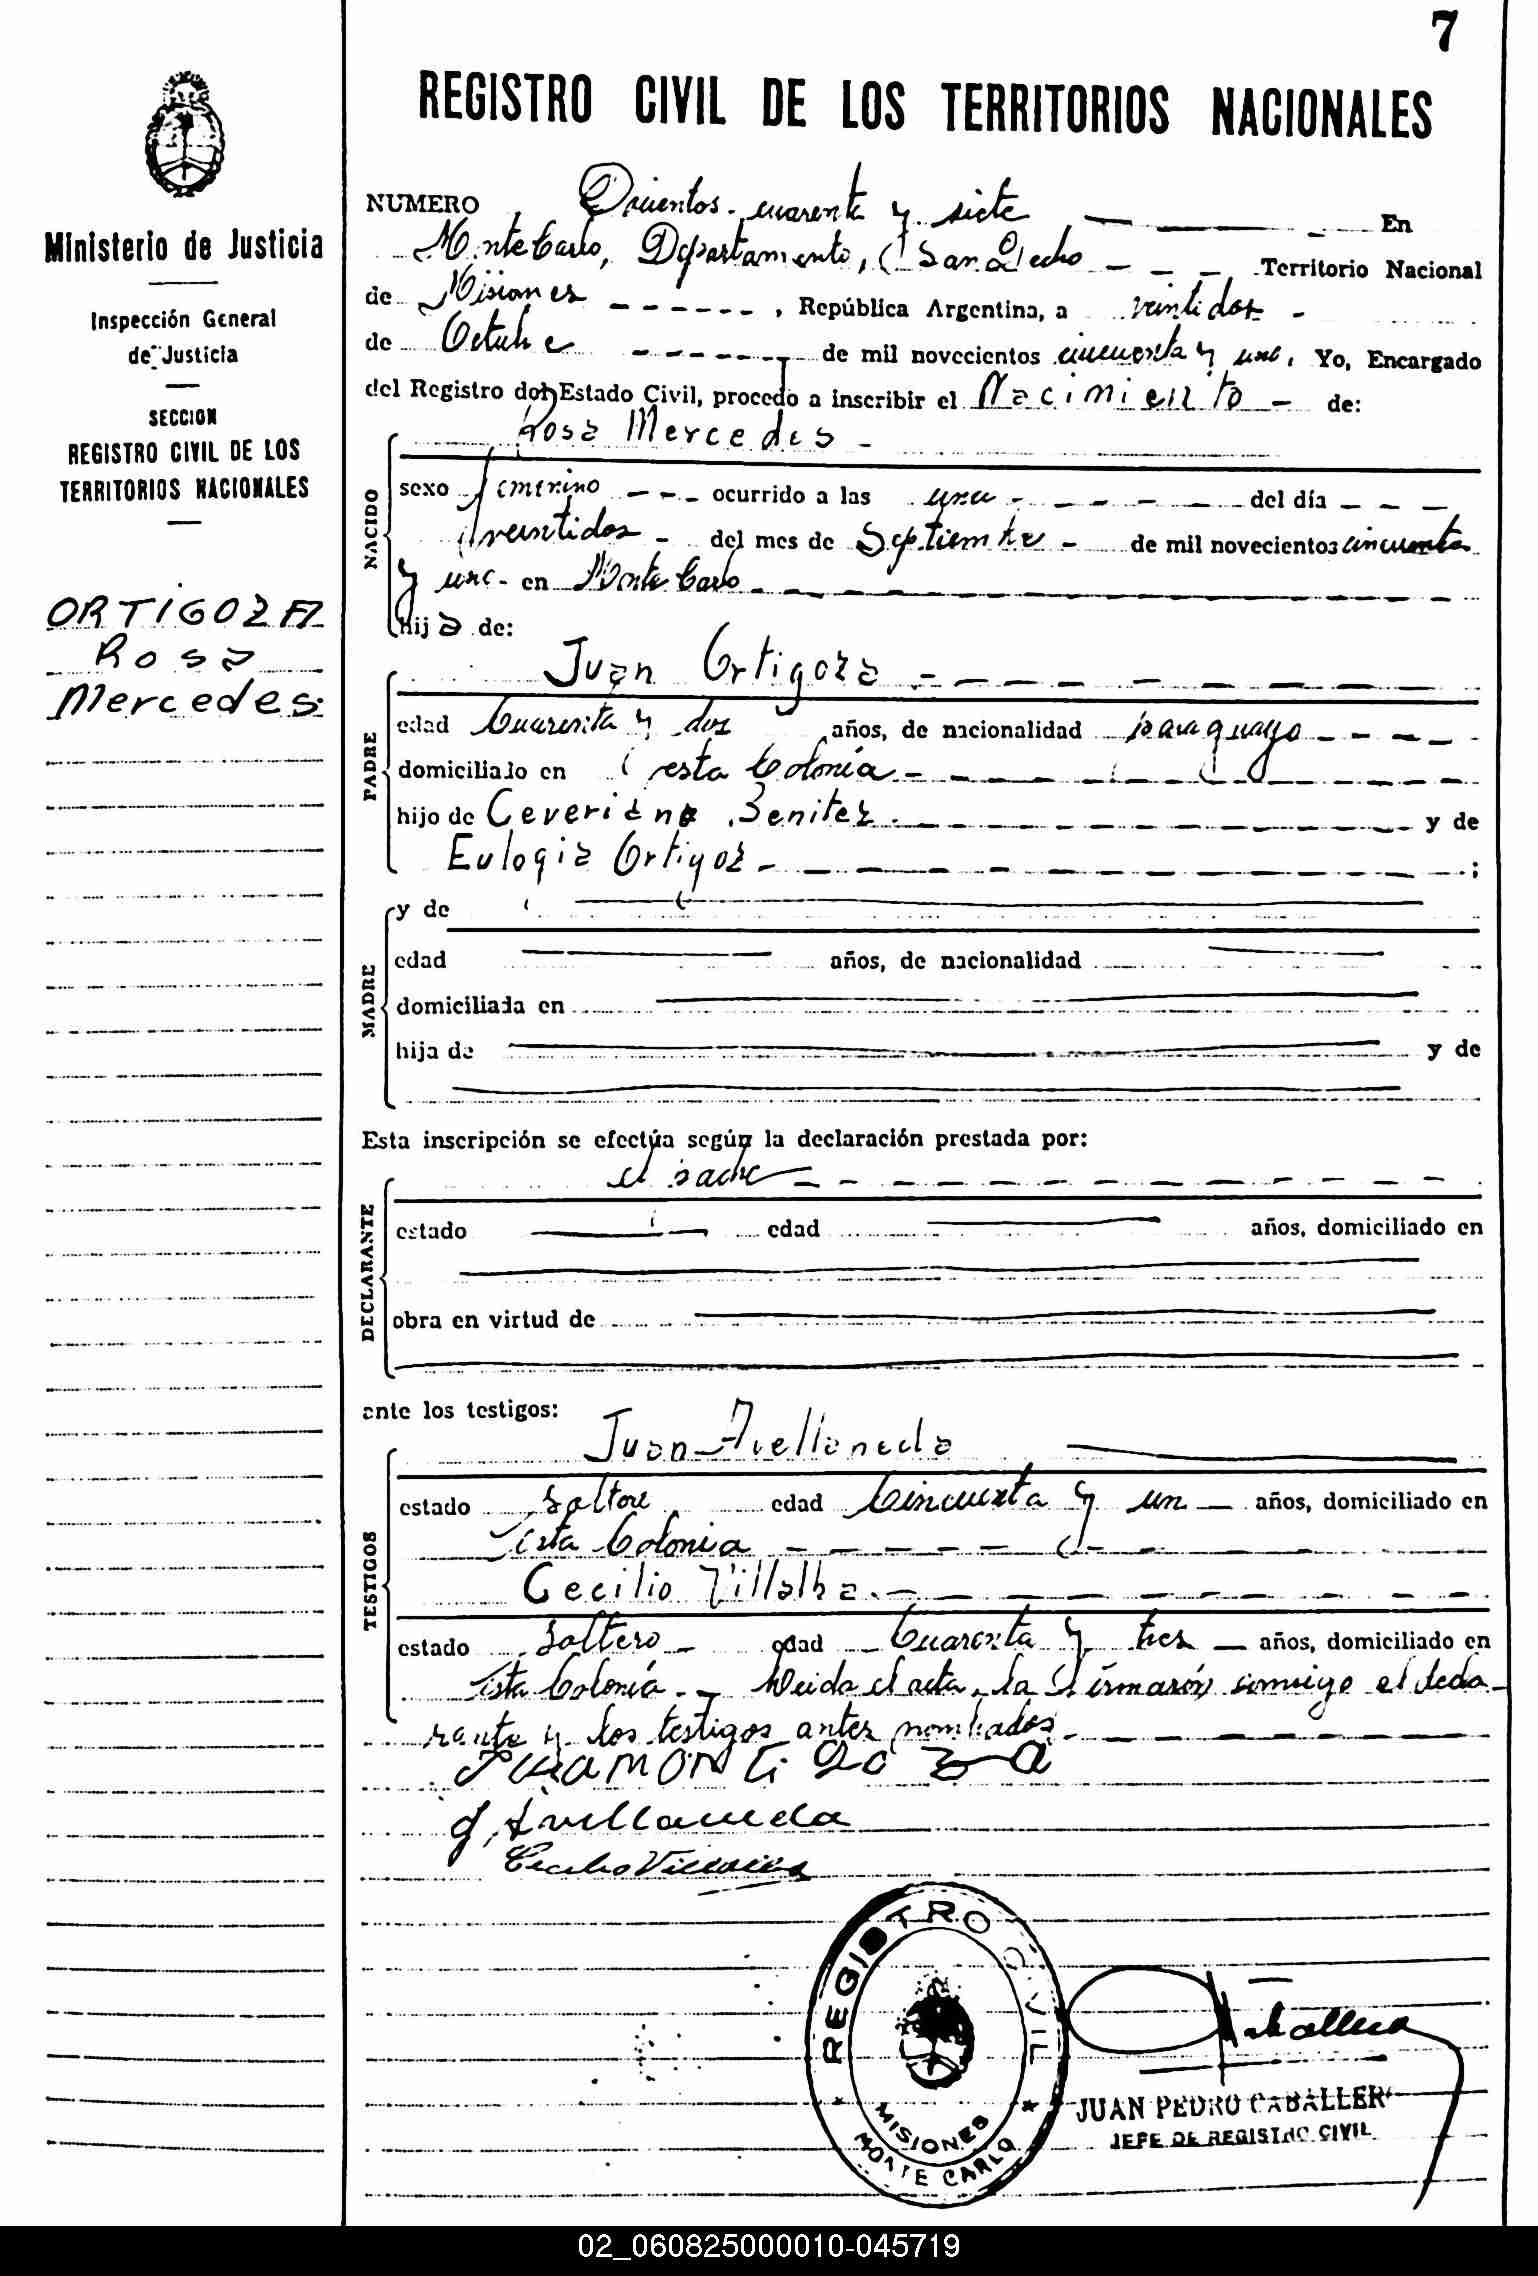 7
REGISTRO CIVIL DE LOS TERRITORIOS NACIONALES
Ministerio de Justicia
Inspección General
de Justicia
SECCION
REGISTRO CIVIL DE LOS
TERRITORIOS NACIONALES
ORTIGOZA
Rosa
Mercedes.
NUMERO cuarenta y siete En
Monte Carlo, Departamento, San Pedro Territorio Nacional
de Misiones, República Argentina, a veintidos
de Octubre de mil novecientos cincuenta y uno, Yo, Encargado
del Registro del Estado Civil, procedo a inscribir el Nacimiento de:
Rosa Mercedes
NACIDO
sexo femenino ocurrido a las una del día
veintidos del mes de Septiembre de mil novecientos cincuenta
y uno en Monte Carlo
hija de:
Juan Ortigoza
PADRE
edad Cuarenta y dos años, de nacionalidad paraguayo
domiciliado en esta Colonia
hijo de Benitez y de
Eulogia ;
MADRE
y de
edad años, de nacionalidad
domiciliada en
hija de y de
Esta inscripción se efectúa según la declaración prestada por:
el padre
DECLARANTE
estado edad años, domiciliado en
obra en virtud de
ante los testigos:
Juan Avellaneda
TESTIGOS
estado Soltero edad Cincuenta y un años, domiciliado en
Esta Colonia
Cecilio Villalba
estado Soltero edad Cuarenta y tres años, domiciliado en
Esta Colonia. Leida el acta, la firmarón conmigo el decla
rante y los testigos antes nombrados.
Juan Ortigoza
J. Avellaneda
Cecilio Villalba
REGISTRO CIVIL
MISIONES
MONTE CARLO
JUAN PEDRO CABALLERO
JEFE DE REGISTRO CIVIL
02_060825000010-045719